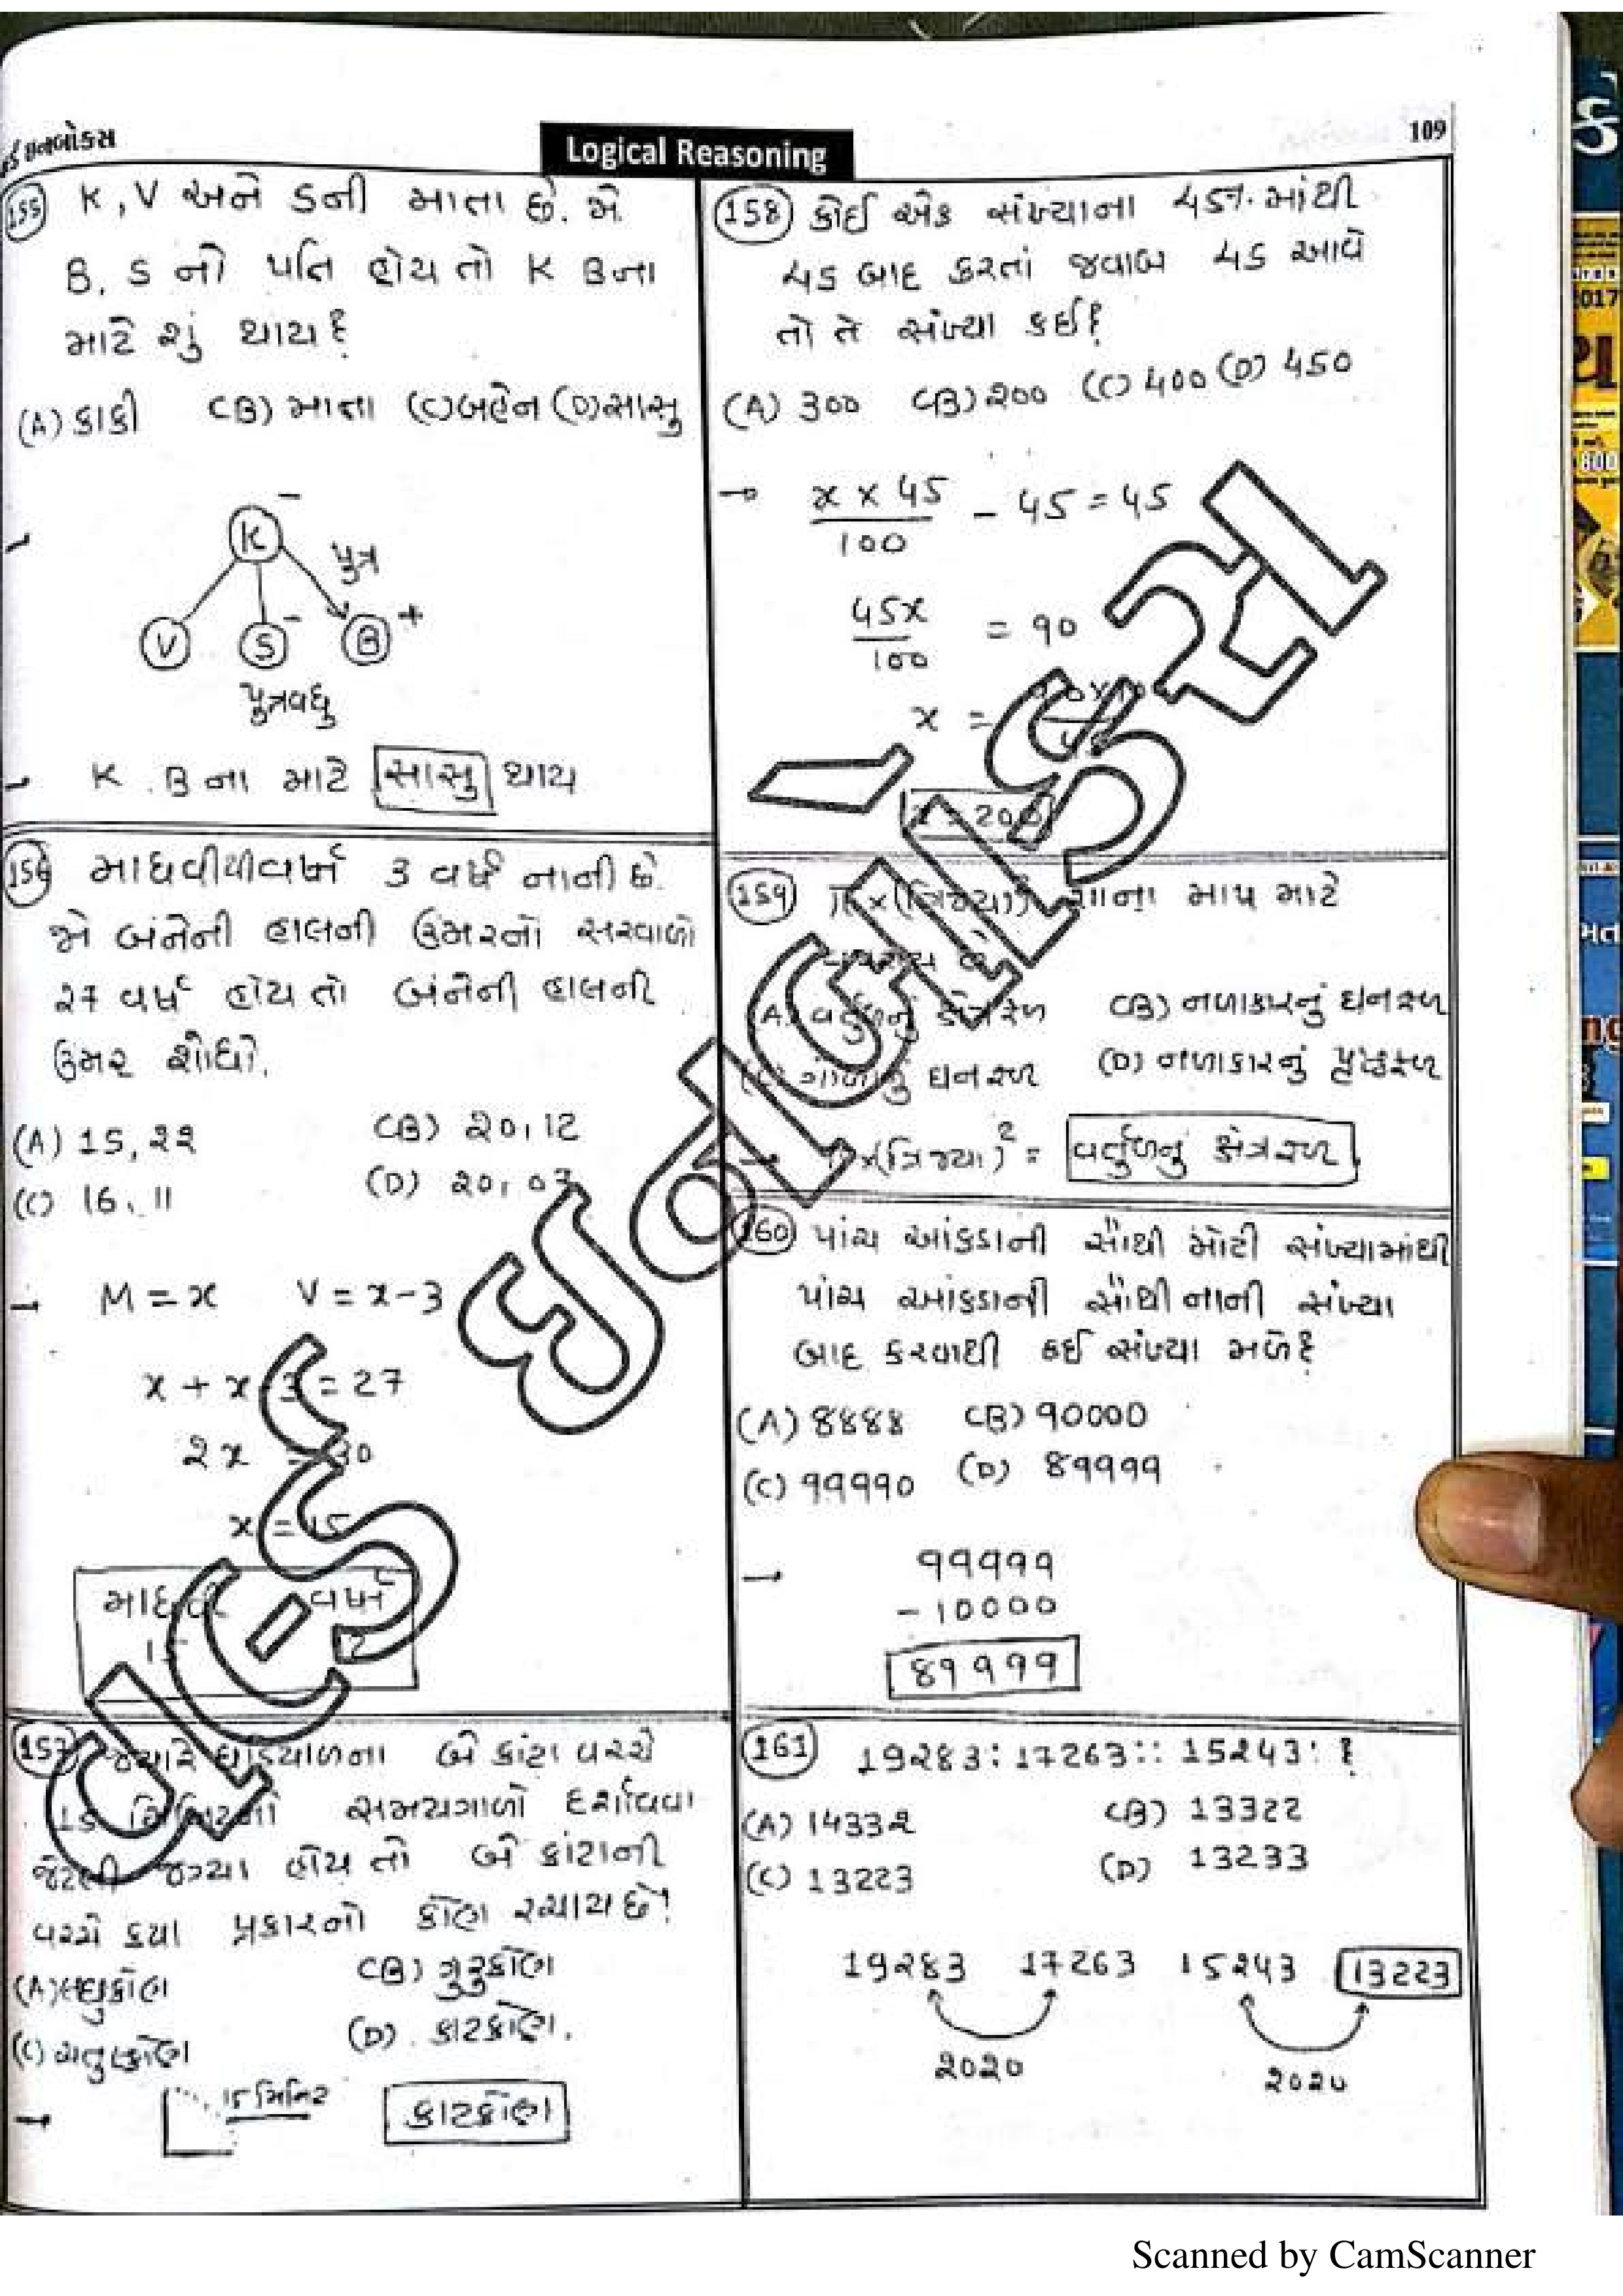 Logical Reasoning
109
155 K, V અને Sની માતા છે. જો
B, S નો પતિ હોય તો K Bના
માટે શું થાય?
(A) કાકી (B) માતા (C) બહેન (D) સાસુ
K
પુત્ર
V S B
પુત્રવધુ
K . B ના માટે સાસુ થાય
156 માધવીથી વર્ષા 3 વર્ષ નાની છે.
જો બંનેની હાલની ઉંમરનો સરવાળો
૨7 વર્ષ હોય તો બંનેની હાલની
ઉંમર શોધો.
(A) 15, ૨૨ (B) ૨0, 12
(C) 16, 11 (D) ૨0, 07
M = x V = x-3
x + x - 3 = 27
2x = 30
x = 15
માધવી વર્ષા
15 12
157 જ્યારે ઘડિયાળના બે કાંટા વચ્ચે
15 મિનિટનો સમયગાળો દર્શાવવા
જેટલી જગ્યા હોય તો બે કાંટાની
વચ્ચે કયા પ્રકારનો કોણ રચાય છે?
(A) લઘુકોણ (B) ગુરુકોણ
(C) ચતુષ્કોણ (D) કાટકોણ.
15 મિનિટ કાટકોણ
158 કોઈ એક સંખ્યાના 45% માંથી
45 બાદ કરતાં જવાબ 45 આવે
તો તે સંખ્યા કઈ?
(A) 300 (B) ૨00 (C) 400 (D) 450
x × 45 / 100 - 45 = 45
45x / 100 = 90
x =
x = 200
159 π×(ત્રિજ્યા)² શાના માપ માટે
(A) વર્તુળનું ક્ષેત્રફળ (B) નળાકારનું ઘનફળ
(C) ગોળાનું ઘનફળ (D) નળાકારનું પૃષ્ઠફળ
π×(ત્રિજ્યા)² = વર્તુળનું ક્ષેત્રફળ
160 પાંચ આંકડાની સૌથી મોટી સંખ્યામાંથી
પાંચ આંકડાની સૌથી નાની સંખ્યા
બાદ કરવાથી કઈ સંખ્યા મળે?
(A) 8888 (B) 90000
(C) 99990 (D) 89999
99999
- 10000
89999
161 19૨83 : 17૨63 :: 15૨43 : ?
(A) 1433૨ (B) 13322
(C) 13223 (D) 13233
19૨83 17૨63 15૨43 13223
૨0૨0 ૨0૨0
Scanned by CamScanner